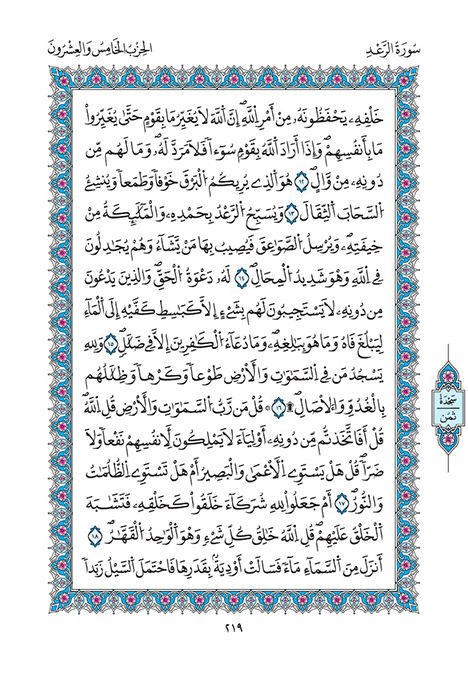 سُورَةُ الرَّعْدِ
الحِزْبُ الخَامِسُ وَالعِشْرُونَ
خَلْفِهِۦ يَحْفَظُونَهُۥ مِنْ أَمْرِ اِ۬للَّهِۖ إِنَّ اَ۬للَّهَ لَا يُغَيِّرُ مَا بِقَوْمٍ حَتَّىٰ يُغَيِّرُواْ
مَا بِأَنفُسِهِمْۖ وَإِذَا أَرَادَ اَ۬للَّهُ بِقَوْمٍ سُوٓءاٗ فَلَا مَرَدَّ لَهُۥۖ وَمَا لَهُم مِّن
دُونِهِۦ مِنْ وَّالٍۖ ١٢ هُوَ اَ۬لذِے يُرِيكُمُ اُ۬لْبَرْقَ خَوْفاٗ وَطَمَعاٗ وَيُنشِۓُ
اُ۬لسَّحَابَ اَ۬لثِّقَالَۖ ١٣ وَيُسَبِّحُ اُ۬لرَّعْدُ بِحَمْدِهِۦ وَالْمَلَٰٓئِكَةُ مِنْ
خِيفَتِهِۦۖ وَيُرْسِلُ اُ۬لصَّوَٰعِقَ فَيُصِيبُ بِهَا مَنْ يَّشَآءُ وَهُمْ يُجَٰدِلُونَ
فِے اِ۬للَّهِ وَهُوَ شَدِيدُ اُ۬لْمِحَالِۖ ١٤ لَهُۥ دَعْوَةُ اُ۬لْحَقِّۖ وَالذِينَ يَدْعُونَ
مِن دُونِهِۦ لَا يَسْتَجِيبُونَ لَهُم بِشَےْءٍ اِلَّا كَبَٰسِطِ كَفَّيْهِ إِلَى اَ۬لْمَآءِ
لِيَبْلُغَ فَاهُ وَمَا هُوَ بِبَٰلِغِهِۦۖ وَمَا دُعَآءُ اُ۬لْكٰ۪فِرِينَ إِلَّا فِے ضَلَٰلٍۖ ١٥ وَلِلهِ
يَسْجُدُ مَن فِے اِ۬لسَّمَٰوَٰتِ وَالْأَرْضِ طَوْعاٗ وَكَرْهاٗ وَظِلَٰلُهُم
بِالْغُدُوِّ وَالْأٓصَالِ۩ ١٦ قُلْ مَن رَّبُّ اُ۬لسَّمَٰوَٰتِ وَالْأَرْضِ قُلِ اِ۬للَّهُۖ
قُلْ أَفَاتَّخَذتُّم مِّن دُونِهِۦٓ أَوْلِيَآءَ لَا يَمْلِكُونَ لِأَنفُسِهِمْ نَفْعاٗ وَلَا
ضَرّاٗۖ قُلْ هَلْ يَسْتَوِے اِ۬لْأَعْمَىٰ وَالْبَصِيرُ أَمْ هَلْ تَسْتَوِے اِ۬لظُّلُمَٰتُ
وَالنُّورُۖ ١٧ أَمْ جَعَلُواْ لِلهِ شُرَكَآءَ خَلَقُواْ كَخَلْقِهِۦ فَتَشَٰبَهَ
اَ۬لْخَلْقُ عَلَيْهِمْۖ قُلِ اِ۬للَّهُ خَٰلِقُ كُلِّ شَےْءٖ وَهُوَ اَ۬لْوَٰحِدُ اُ۬لْقَهَّٰرُۖ ١٨
أَنزَلَ مِنَ اَ۬لسَّمَآءِ مَآءٗ فَسَالَتْ أَوْدِيَةُۢ بِقَدَرِهَا فَاحْتَمَلَ اَ۬لسَّيْلُ زَبَداٗ
سَجْدَة
ثُمُن
٢١٩